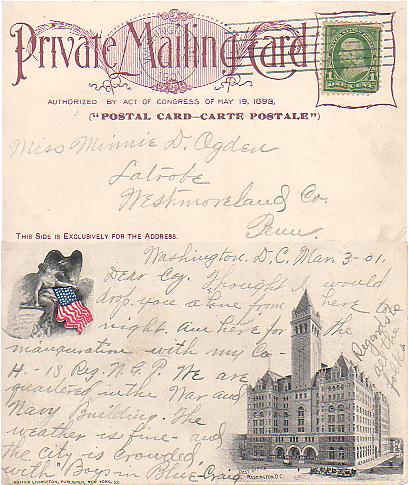 Private Mailing Card
AUTHORIZED BY ACT OF CONGRESS OF MAY 19, 1898,
("POSTAL CARD—CARTE POSTALE")
1 ONE CENT 1
Miss Minnie D. Ogden
Latrobe
Westmoreland Co.
Penn.
THIS SIDE IS EXCLUSIVELY FOR THE ADDRESS.
Washington, D.C. Mar. 3-01.
Dear Coz. Thought I would
drop you a line from here
right. Am here for the
inauguration with my Co-
H.- 18 Reg. N.G.P. We are
quartered in the War and
Navy Building. The
weather is fine- and
the city is crowded
with "Boys in Blue" Craig
Regards to
all the
folks
POST OFFICE
WASHINGTON D.C.
ARTHUR LIVINGSTON, PUBLISHER, NEW YORK.